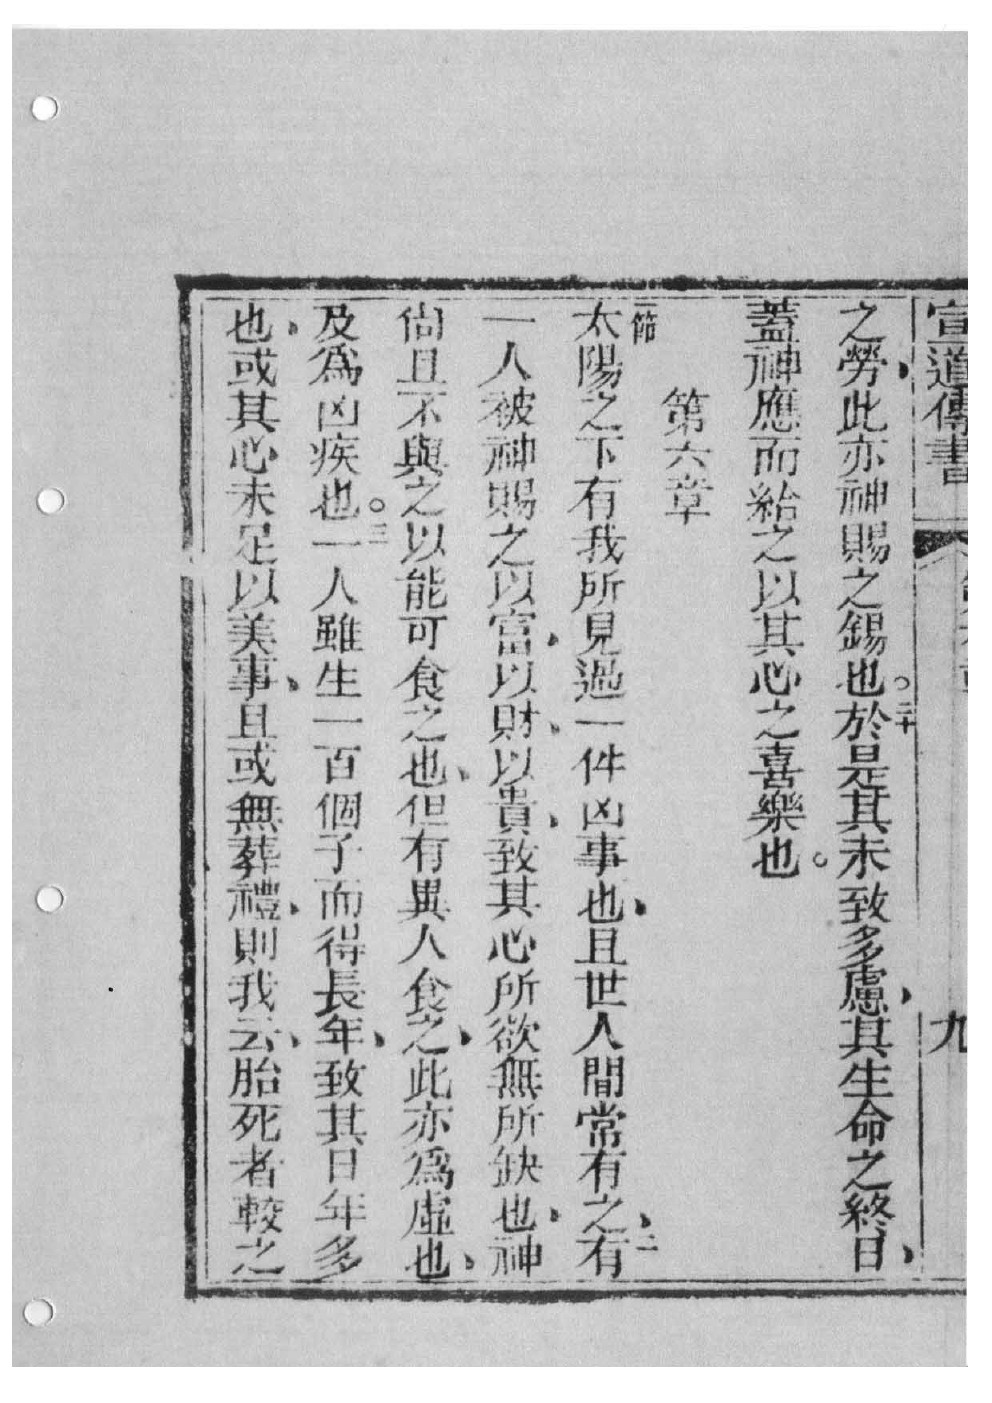 宣道傳書 九
之勞、此亦神賜之錫也。二十於是其未致多慮、其生命之終日、
蓋神應而給之以其心之喜樂也。
第六章
一節太陽之下有我所見過一件凶事也、且世人間常有之、二有
一人被神賜之以富、以財、以貴、致其心所欲無所缺也、神
尚且不與之以能可食之也、但有異人食之、此亦為虛也、
及為凶疾也。三一人雖生一百個子而得長年、致其日年多
也、或其心未足以美事、且或無葬禮、則我云、胎死者較之